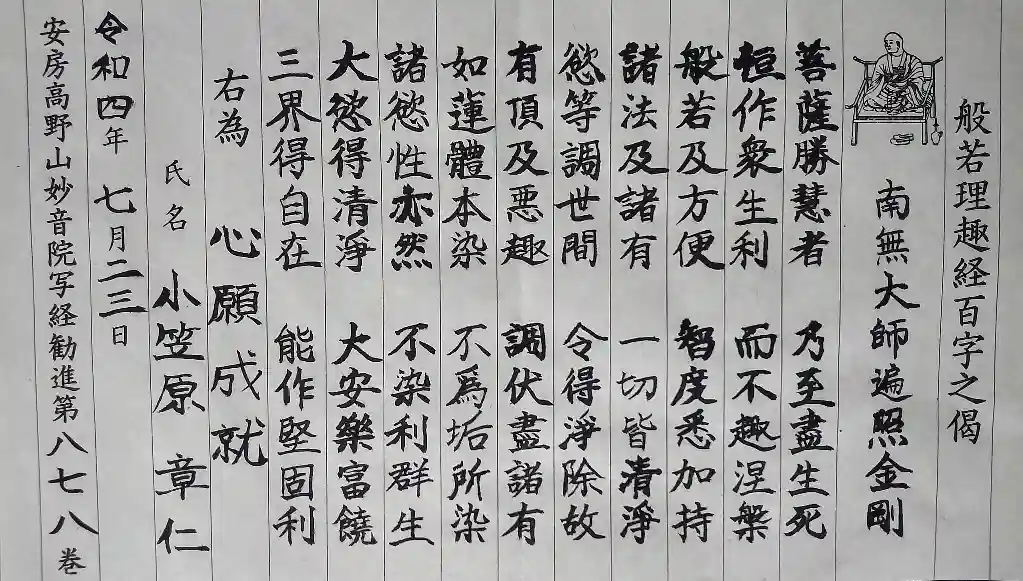 般若理趣経百字之偈
南無大師遍照金剛
菩薩勝慧者 乃至盡生死
恒作衆生利 而不趣涅槃
般若及方便 智度悉加持
諸法及諸有 一切皆清淨
慾等調世間 令得淨除故
有頂及惡趣 調伏盡諸有
如蓮體本染 不爲垢所染
諸慾性亦然 不染利群生
大慾得清淨 大安樂富饒
三界得自在 能作堅固利
右為 心願成就
氏名 小笠原 章仁
令和四年 七月二三日
安房高野山妙音院写経勧進第八七八巻